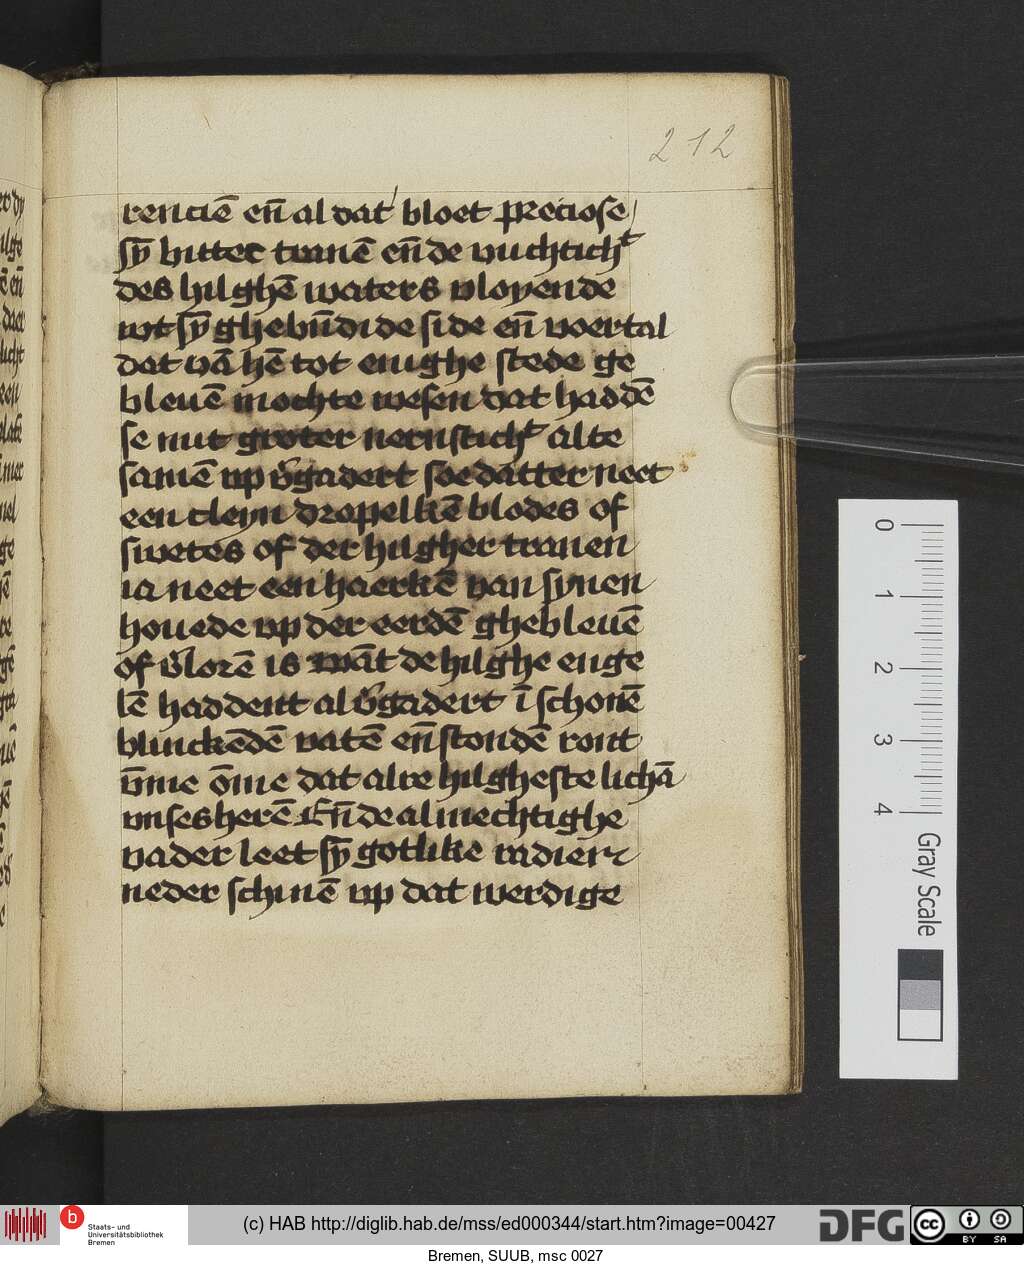 212
renciē en̄ al dat bloet preciose
sȳ bitter tranē en̄ de vuchtich​ᵗ
des hilghē waters vloyende
wt sȳ ghebn̄didе side en̄ voertal
dat vā hē tot enighe stede ge
bleuē mochte wesen dat haddē
se mit groter nernstich​ᵗ alte
samē vp v̄gadert soe datter neet
een cleyn dropelkē blodes of
swetes of der hilgher tranen
ia neet een haerkē van synen
houede vp der eerdē ghebleuē
of v̄lorē is wāt de hilghe enge
lē haddent al v̄gadert ī schonē
blinckēdē vatē en̄ stondē ront
v̄me ōme dat alre hilgheste lichā
vnses herē En̄ de almechtighe
vader leet sȳ gotlike radiērē
neder schinē vp dat werdige
0
1
2
3
4
Gray Scale
b Staats- und
Universitätsbibliothek
Bremen
(c) HAB http://diglib.hab.de/mss/ed000344/start.htm?image=00427
DFG
cc
BY SA
Bremen, SUUB, msc 0027